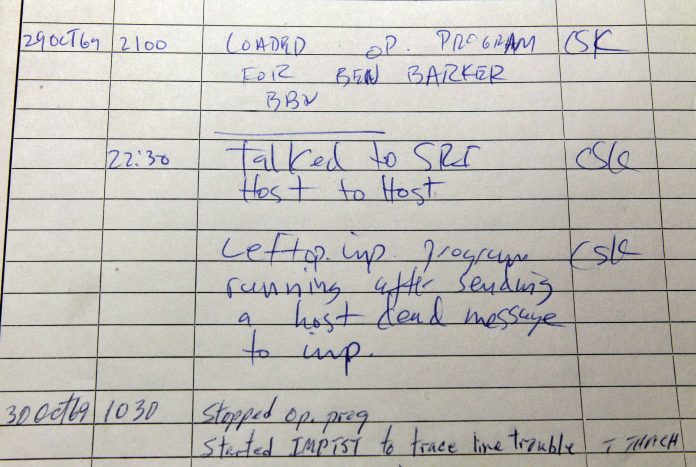 29OCT69 2100 LOADED OP. PROGRAM CSK
FOR BEN BARKER
BBN
22:30 Talked to SRI CSK
Host to Host
Left op. imp. program CSK
running after sending
a host dead message
to imp.
30Oct69 1030 Stopped op. prog
Started IMPTST to trace line trouble T THACH